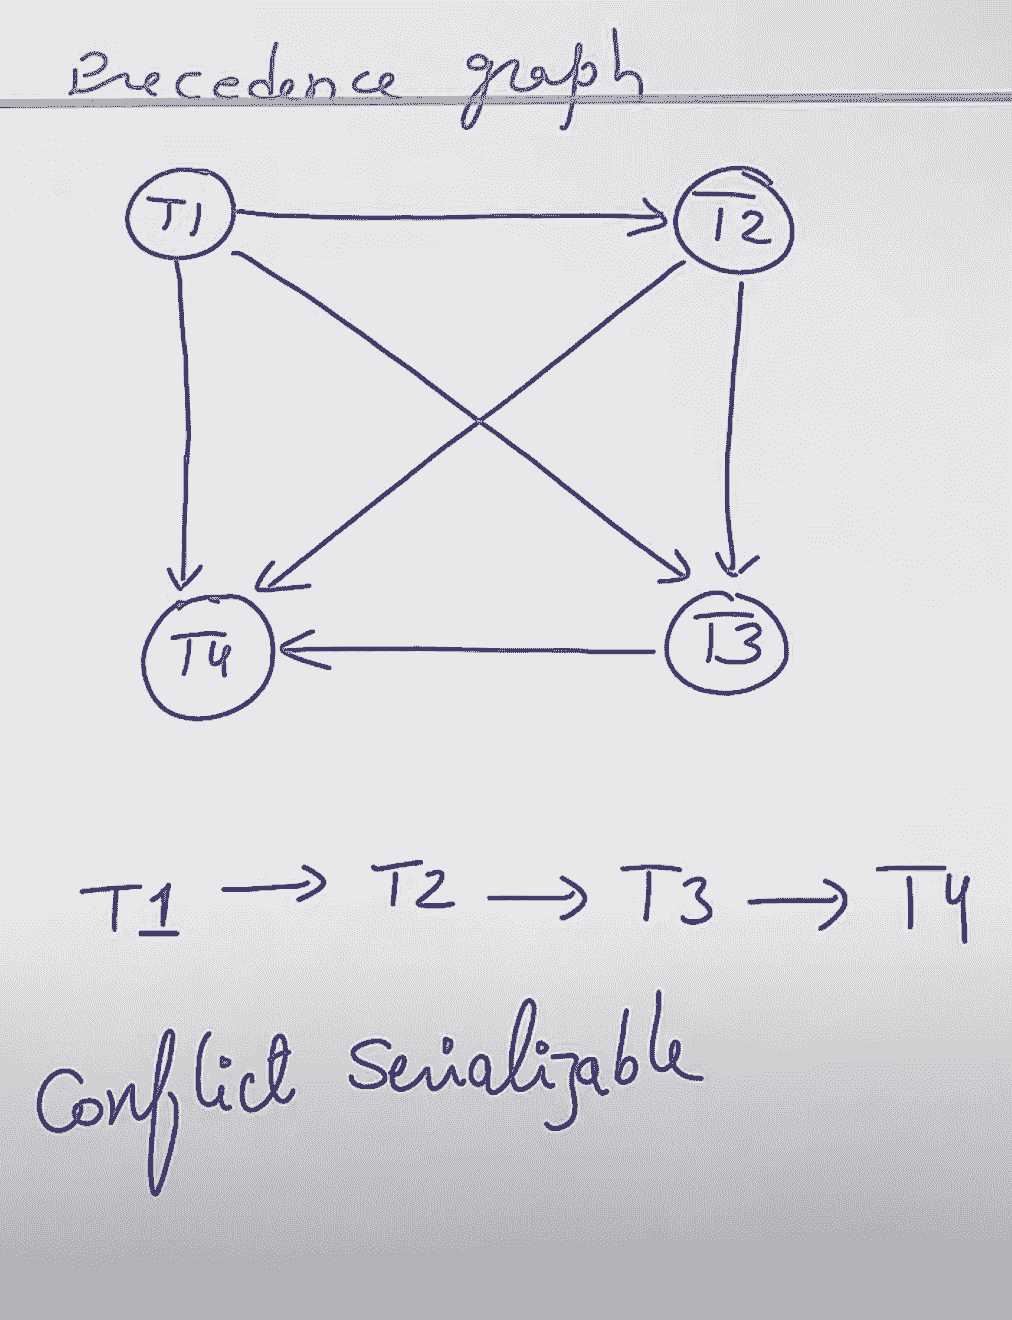 Precedence graph
T1 T2
T4 T3
T1 → T2 → T3 → T4
Conflict Serializable